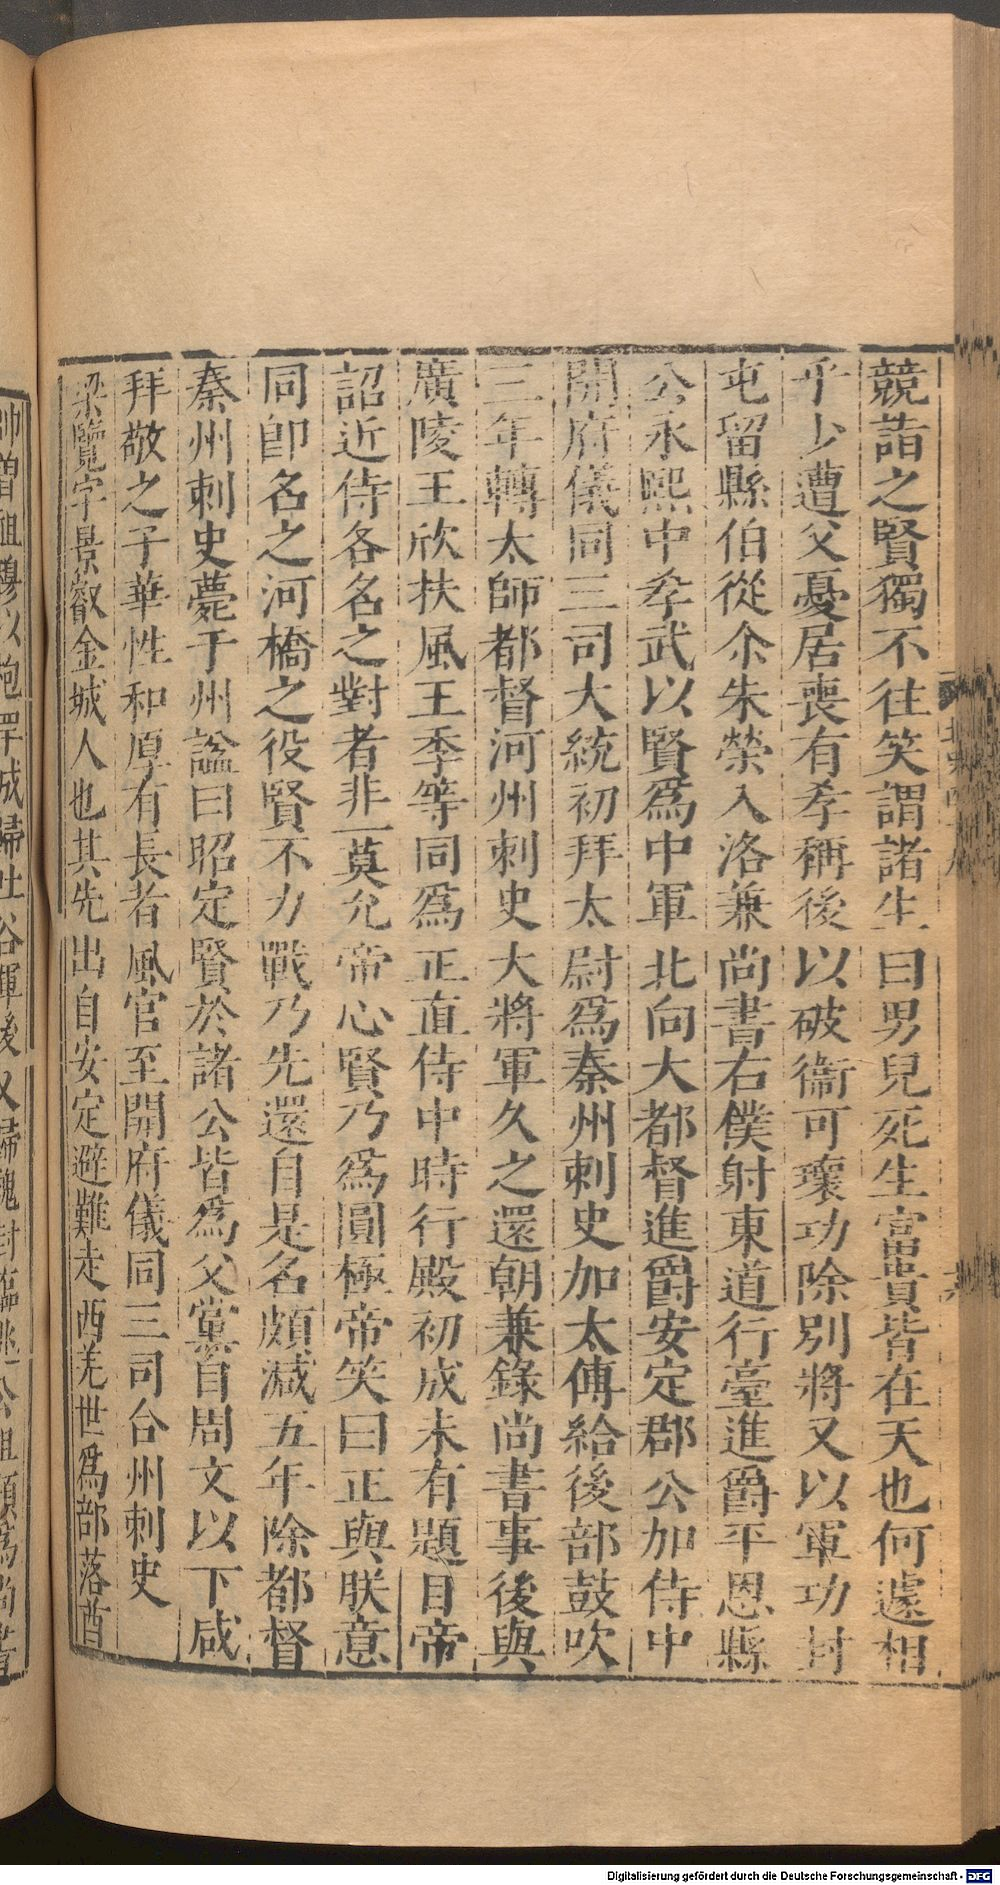 競詣之賢獨不往笑謂諸生曰男兒死生富貴皆在天也何遽相
乎少遭父憂居喪有孝稱後以破衞可瓌功除別將又以軍功封
屯留縣伯從尒朱榮入洛兼尚書右僕射東道行臺進爵平恩縣
公永熙中孝武以賢爲中軍北向大都督進爵安定郡公加侍中
開府儀同三司大統初拜太尉爲秦州刺史加太傅給後部鼓吹
三年轉太師都督河州刺史大將軍久之還朝兼錄尚書事後與
廣陵王欣扶風王季等同爲正直侍中時行殿初成未有題目帝
詔近侍各名之對者非一莫允帝心賢乃爲圓極帝笑曰正與朕意
同卽名之河橋之役賢不力戰乃先還自是名頗減五年除都督
秦州刺史薨于州諡曰昭定賢於諸公皆爲父黨自周文以下咸
拜敬之子華性和厚有長者風官至開府儀同三司台州刺史
梁覽字景叡金城人也其先出自安定避難走西羌世爲部落酋
帥曾祖穆以枹罕城歸吐谷渾後又歸魏封臨洮公祖顗爲尚書
Digitalisierung gefördert durch die Deutsche Forschungsgemeinschaft - DFG